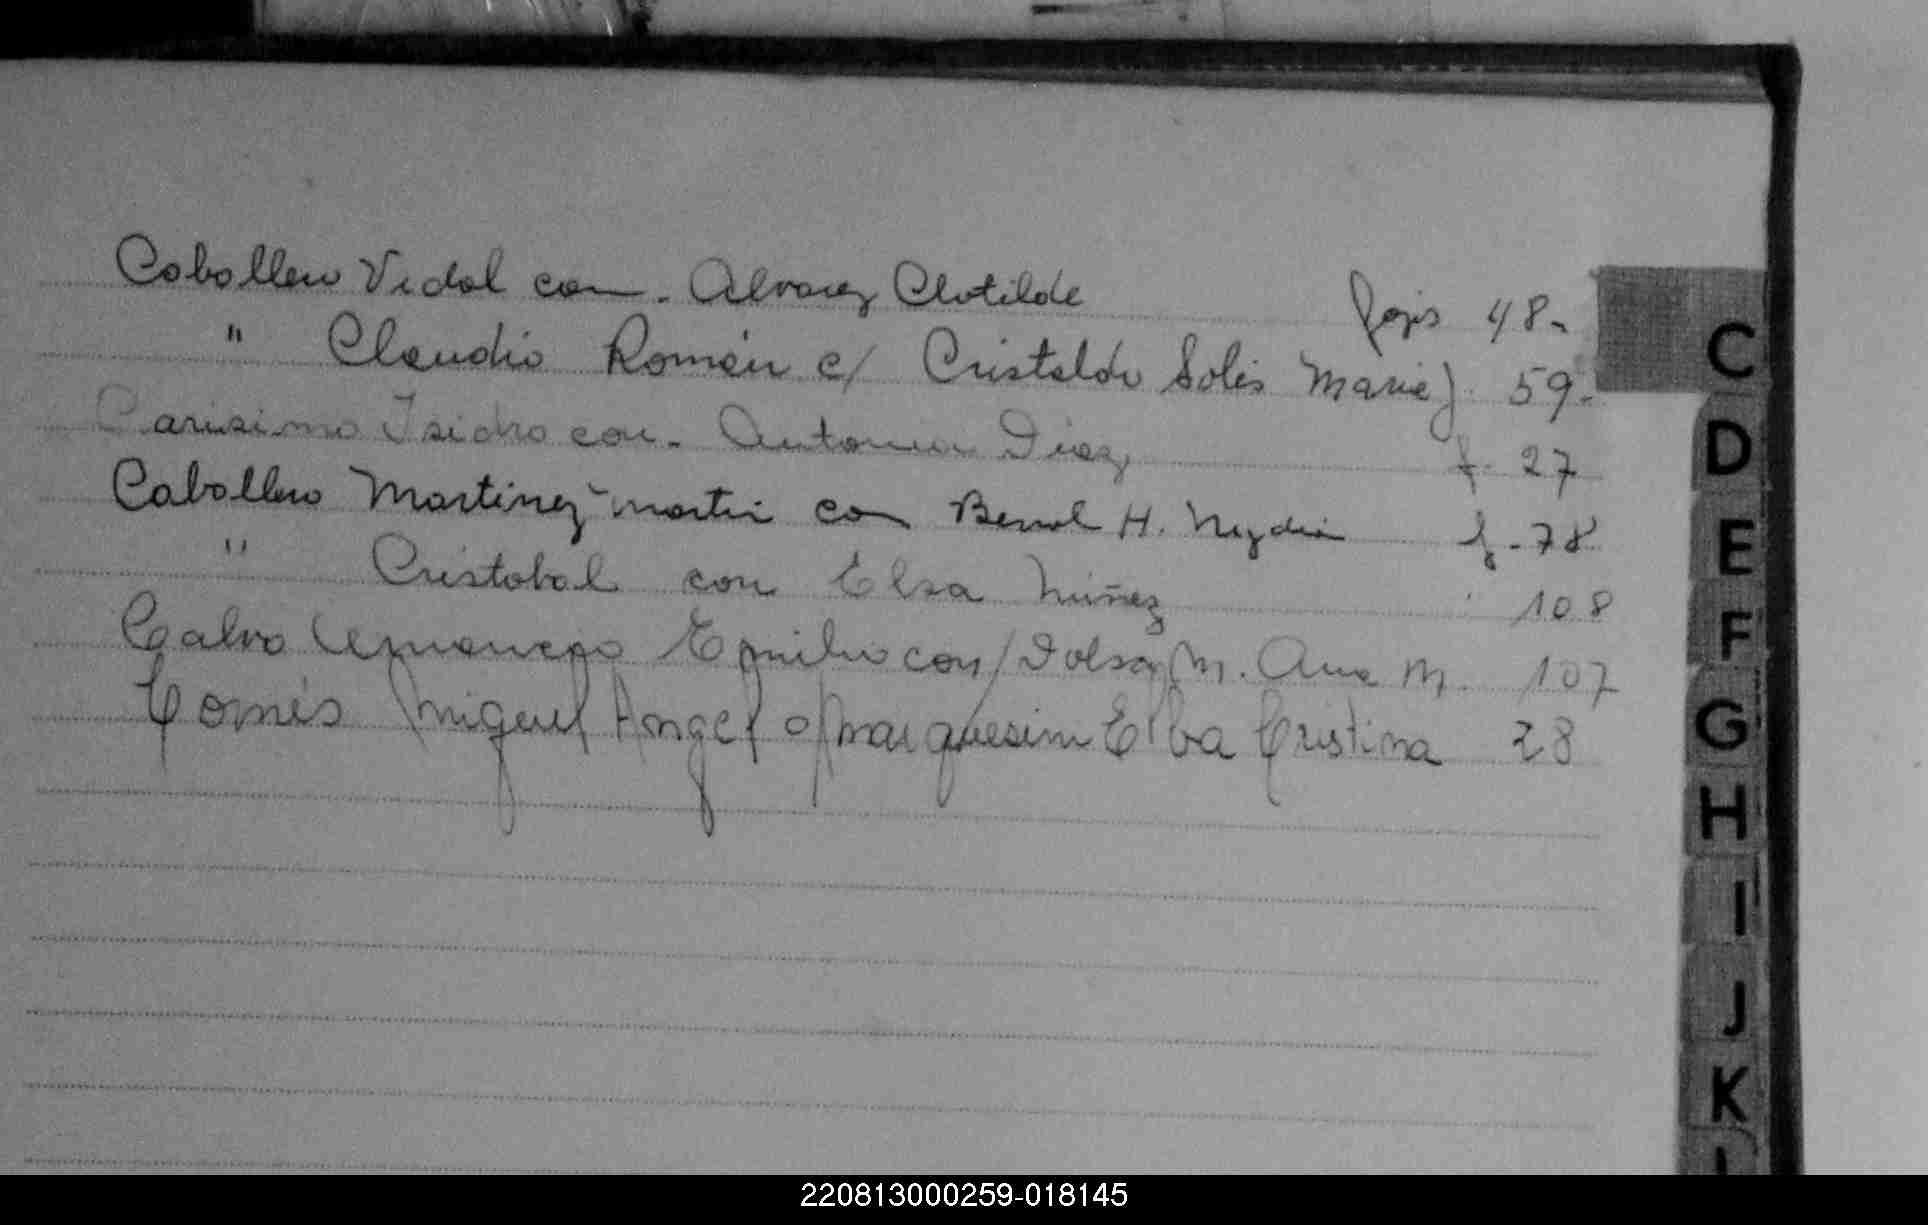 Caballero Vidal con - Alvarez Clotilde fojas 48-
" Claudio Román c/ Cristaldo Solis Maria J. 59-
Carisimo Isidro con - Antonia Diaz f. 27
Caballero Martinez Martin con Bernal H. Nydia f-78
" Cristobal con Elsa Núñez 108
Calvo Emilio con M. Ana M. 107
Miguel Angel Elba Cristina 28
C
D
E
F
G
H
I
J
K
220813000259-018145